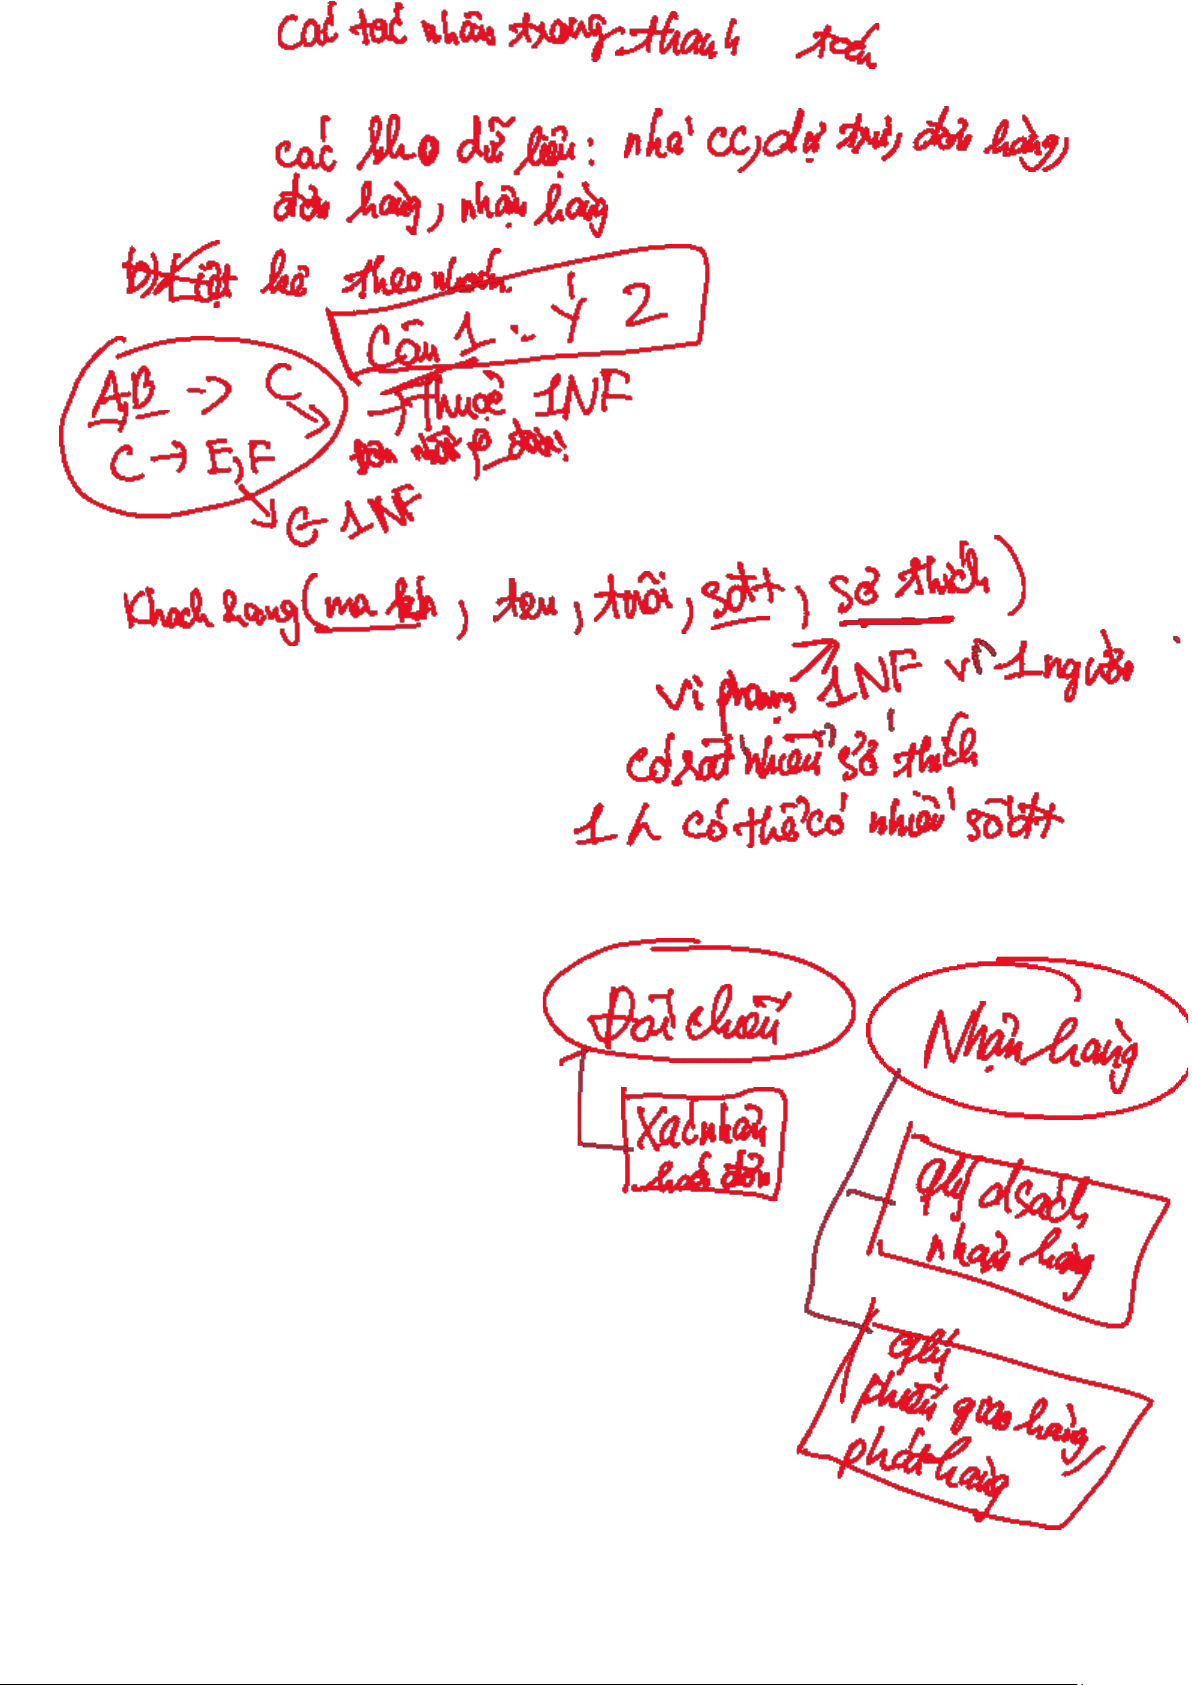 các tác nhân trong thanh toán
các kho dữ liệu: nhà CC, dự trù, đơn hàng,
đơn hàng, nhận hàng
b) Liệt kê theo nhánh
Câu 1: Ý 2
A,B → C
→ thuộc 1NF
C → E,F
∈ 1NF
Khach hang (ma kh, ten, tuổi, số đt, sở thích)
vi phạm 1NF vì 1 người
có rất nhiều sở thích
1 h có thể có nhiều số đt
Đối chiếu
Nhận hàng
Xác nhận
hoá đơn
qlý dsách
nhận hàng
qlý
phiếu giao hàng,
phát hàng